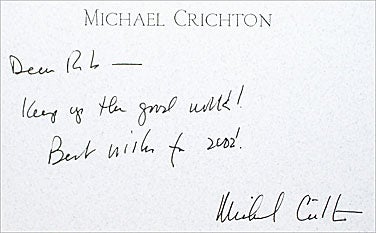 MICHAEL CRICHTON
Dear Rob —
Keep up the good work!
Best wishes for 2002!
Michael Crichton